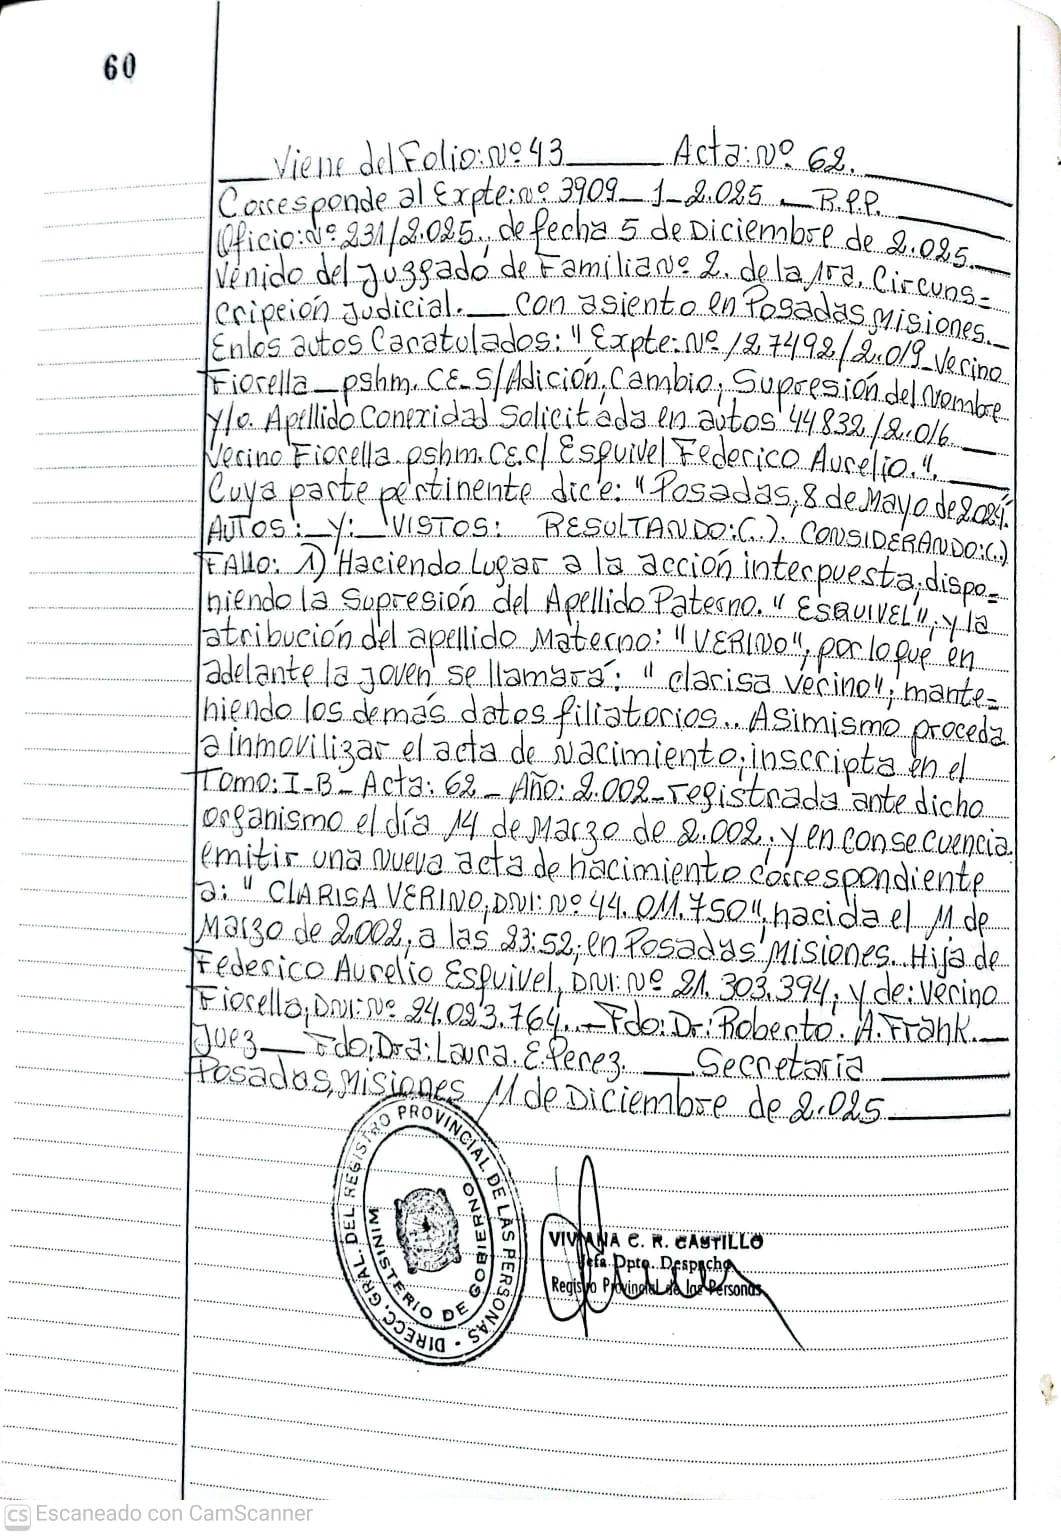 60
Viene del Folio: Nº 43 Acta: Nº 62.
Corresponde al Expte: nº 3909_1_2.025 _ R.P.P.
Oficio: Nº 231/2.025, de fecha 5 de Diciembre de 2.025.
Venido del Juzgado de Familia Nº 2. de la 1ra. Circuns=
cripción Judicial. Con asiento en Posadas Misiones.
En los autos Caratulados: "Expte: Nº 127492/2.019_Verino
Fiorella_pshm. CE_S/Adición, Cambio, Supresión del Nombre
y/o. Apellido Conexidad Solicitáda en autos 44832/2.016
Verino Fiorella. pshm. CE.c/ Esquivel Federico Aurelio.".
Cuya parte pertinente dice: "Posadas, 8 de Mayo de 2024.
AUTOS: Y: VISTOS: RESULTANDO:(..). CONSIDERANDO:(..)
FAllo: 1) Haciendo Lugar a la acción interpuesta, dispo=
niendo la Supresión del Apellido Paterno. "ESQUIVEL", y la
atribución del apellido Materno: "VERINO", por lo que en
adelante la joven se llamará: "Clarisa Verino", mante=
niendo los demás datos filiatorios.. Asimismo proceda
a inmovilizar el acta de Nacimiento, inscripta en el
Tomo: I-B_ Acta: 62 _ Año: 2.002_registrada ante dicho
organismo el día 14 de Marzo de 2.002, y en consecuencia
emitir una nueva acta de nacimiento correspondiente
a: "CLARISA VERINO, DNI: Nº 44.011.750", nacida el 11 de
Marzo de 2.002, a las 23:52, en Posadas Misiones. Hija de
Federico Aurelio Esquivel, DNI: Nº 21.303.394, y de: Verino
Fiorella, DNI: Nº 24.023.764._Fdo: Dr: Roberto. A. Frank.
Juez_ Fdo; Dra: Laura. E. Perez. Secretaría
Posadas, Misiones 11 de Diciembre de 2.025
DIRECC. GRAL. DEL REGISTRO PROVINCIAL DE LAS PERSONAS
MINISTERIO DE GOBIERNO
VIVIANA C. R. CASTILLO
Jefa Dpto. Despacho
Registro Provincial de las Personas
CS Escaneado con CamScanner